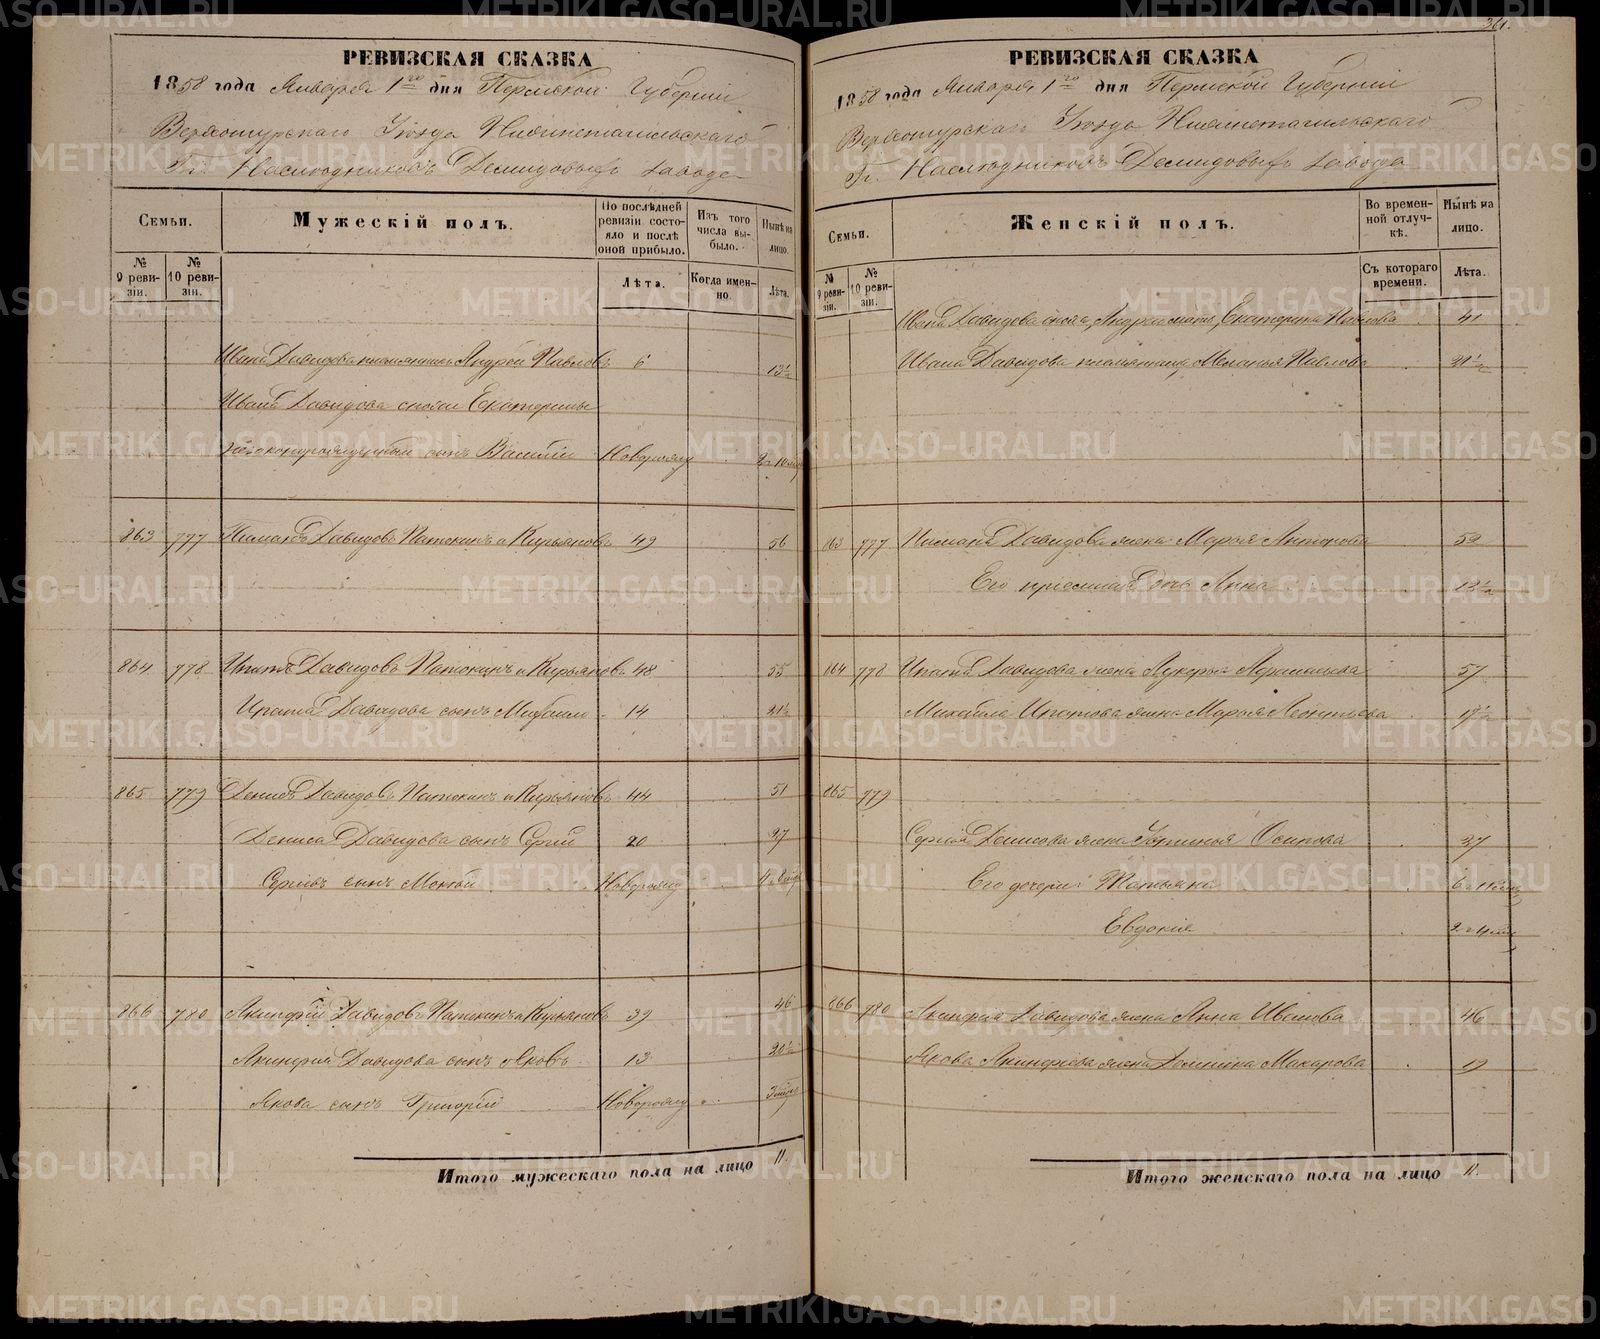 361.
РЕВИЗСКАЯ СКАЗКА
1858 года Января 1го дня Пермской Губернии
Верхотурскаго Уѣзда Нижнетагильскаго
Гг. Наслѣдниковъ Демидовыхъ завода
Семьи.
Мужескій полъ.
По послѣдней ревизіи состояло и послѣ оной прибыло.
Изъ того числа выбыло.
Нынѣ на лицо.
№ 9 ревизіи.
№ 10 ревизіи.
Лѣта.
Когда именно.
Лѣта.
Ивана Давидова племянникъ Андрей Павловъ 6 13½
Ивана Давидова снохи Екатерины
незаконнорожденный сынъ Василій Новорожд
863 777 Давидовъ Патокинъ и Кирьяновъ 49 56
864 778 Ипатъ Давидовъ Патокинъ и Кирьяновъ 48 55
Ипата Давидова сынъ Михаилъ 14 21½
865 779 Денисъ Давидовъ Патокинъ и Кирьяновъ 44 51
Дениса Давидова сынъ Сергій 20 27
Сергія сынъ Новорожд
866 780 Акинфій Давидовъ Патокинъ и Кирьяновъ 39 46
Акинфія Давидова сынъ Яковъ 13 20½
Якова сынъ Григорій Новорожд
Итого мужескаго пола на лицо 11.
РЕВИЗСКАЯ СКАЗКА
1858 года Января 1го дня Пермской Губерніи
Верхотурскаго Уѣзда Нижнетагильскаго
Гг. Наслѣдниковъ Демидовыхъ завода
Семьи.
Женскій полъ.
Во временной отлучкѣ.
Нынѣ на лицо.
№ 9 ревизіи.
№ 10 ревизіи.
Съ котораго времени.
Лѣта.
Ивана Давидова сноха, Андрея мать, Екатерина Павлова 41
Ивана Давидова племянница Меланья Павлова 21½
863 777 Давидова жена Марья 59
Его приемная дочь Анна 12½
864 778 Ипата Давидова жена Лукерья 57
Михаила Ипатова жена Марья Леонтьева 19½
865 779
Сергія Денисова жена Осипова 27
Его дочери: Татьяна
Евдокія
866 780 Акинфія Давидова жена Анна Иванова 46
Якова Акинфіева жена Домника Макарова 19
Итого женскаго пола на лицо 11.
METRIKI.GASO-URAL.RU